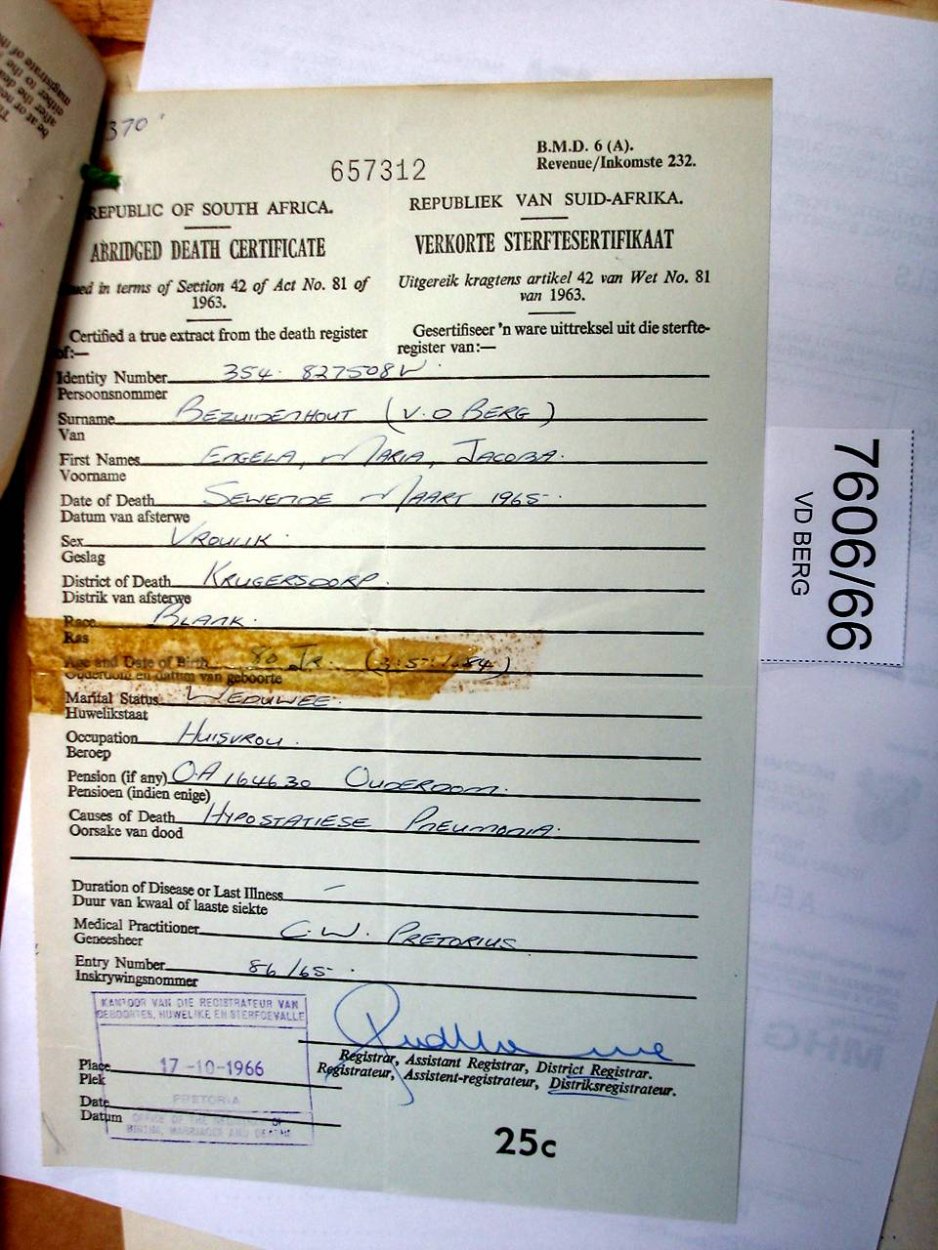 370'
657312
B.M.D. 6 (A).
Revenue/Inkomste 232.
REPUBLIC OF SOUTH AFRICA.
ABRIDGED DEATH CERTIFICATE
in terms of Section 42 of Act No. 81 of
1963.
Certified a true extract from the death register
of:—
REPUBLIEK VAN SUID-AFRIKA.
VERKORTE STERFTESERTIFIKAAT
Uitgereik kragtens artikel 42 van Wet No. 81
van 1963.
Gesertifiseer 'n ware uittreksel uit die sterfte-
register van:—
Identity Number 354 827508W
Persoonsnommer
Surname BEZUIDENHOUT (V.D BERG)
Van
First Names ENGELA, MARIA, JACOBA.
Voorname
Date of Death SEWENDE MAART 1965.
Datum van afsterwe
Sex VROULIK.
Geslag
District of Death KRUGERSDORP.
Distrik van afsterwe
Race BLANK.
Ras
Age and Date of Birth 80 JR. (3.5.1884)
Ouderdom en datum van geboorte
Marital Status WEDUWEE.
Huwelikstaat
Occupation HUISVROU.
Beroep
Pension (if any) OA 164630 OUDERDOM.
Pensioen (indien enige)
Causes of Death HYPOSTATIESE PNEUMONIA.
Oorsake van dood
Duration of Disease or Last Illness –
Duur van kwaal of laaste siekte
Medical Practitioner C.W. PRETORIUS
Geneesheer
Entry Number 86/65.
Inskrywingsnommer
KANTOOR VAN DIE REGISTRATEUR VAN
GEBOORTES, HUWELIKE EN STERFGEVALLE
17-10-1966
PRETORIA
OFFICE OF THE REGISTRAR OF
BIRTHS, MARRIAGES AND DEATHS
Place
Plek
Date
Datum
Registrar, Assistant Registrar, District Registrar.
Registrateur, Assistent-registrateur, Distriksregistrateur.
25c
7606/66
VD BERG